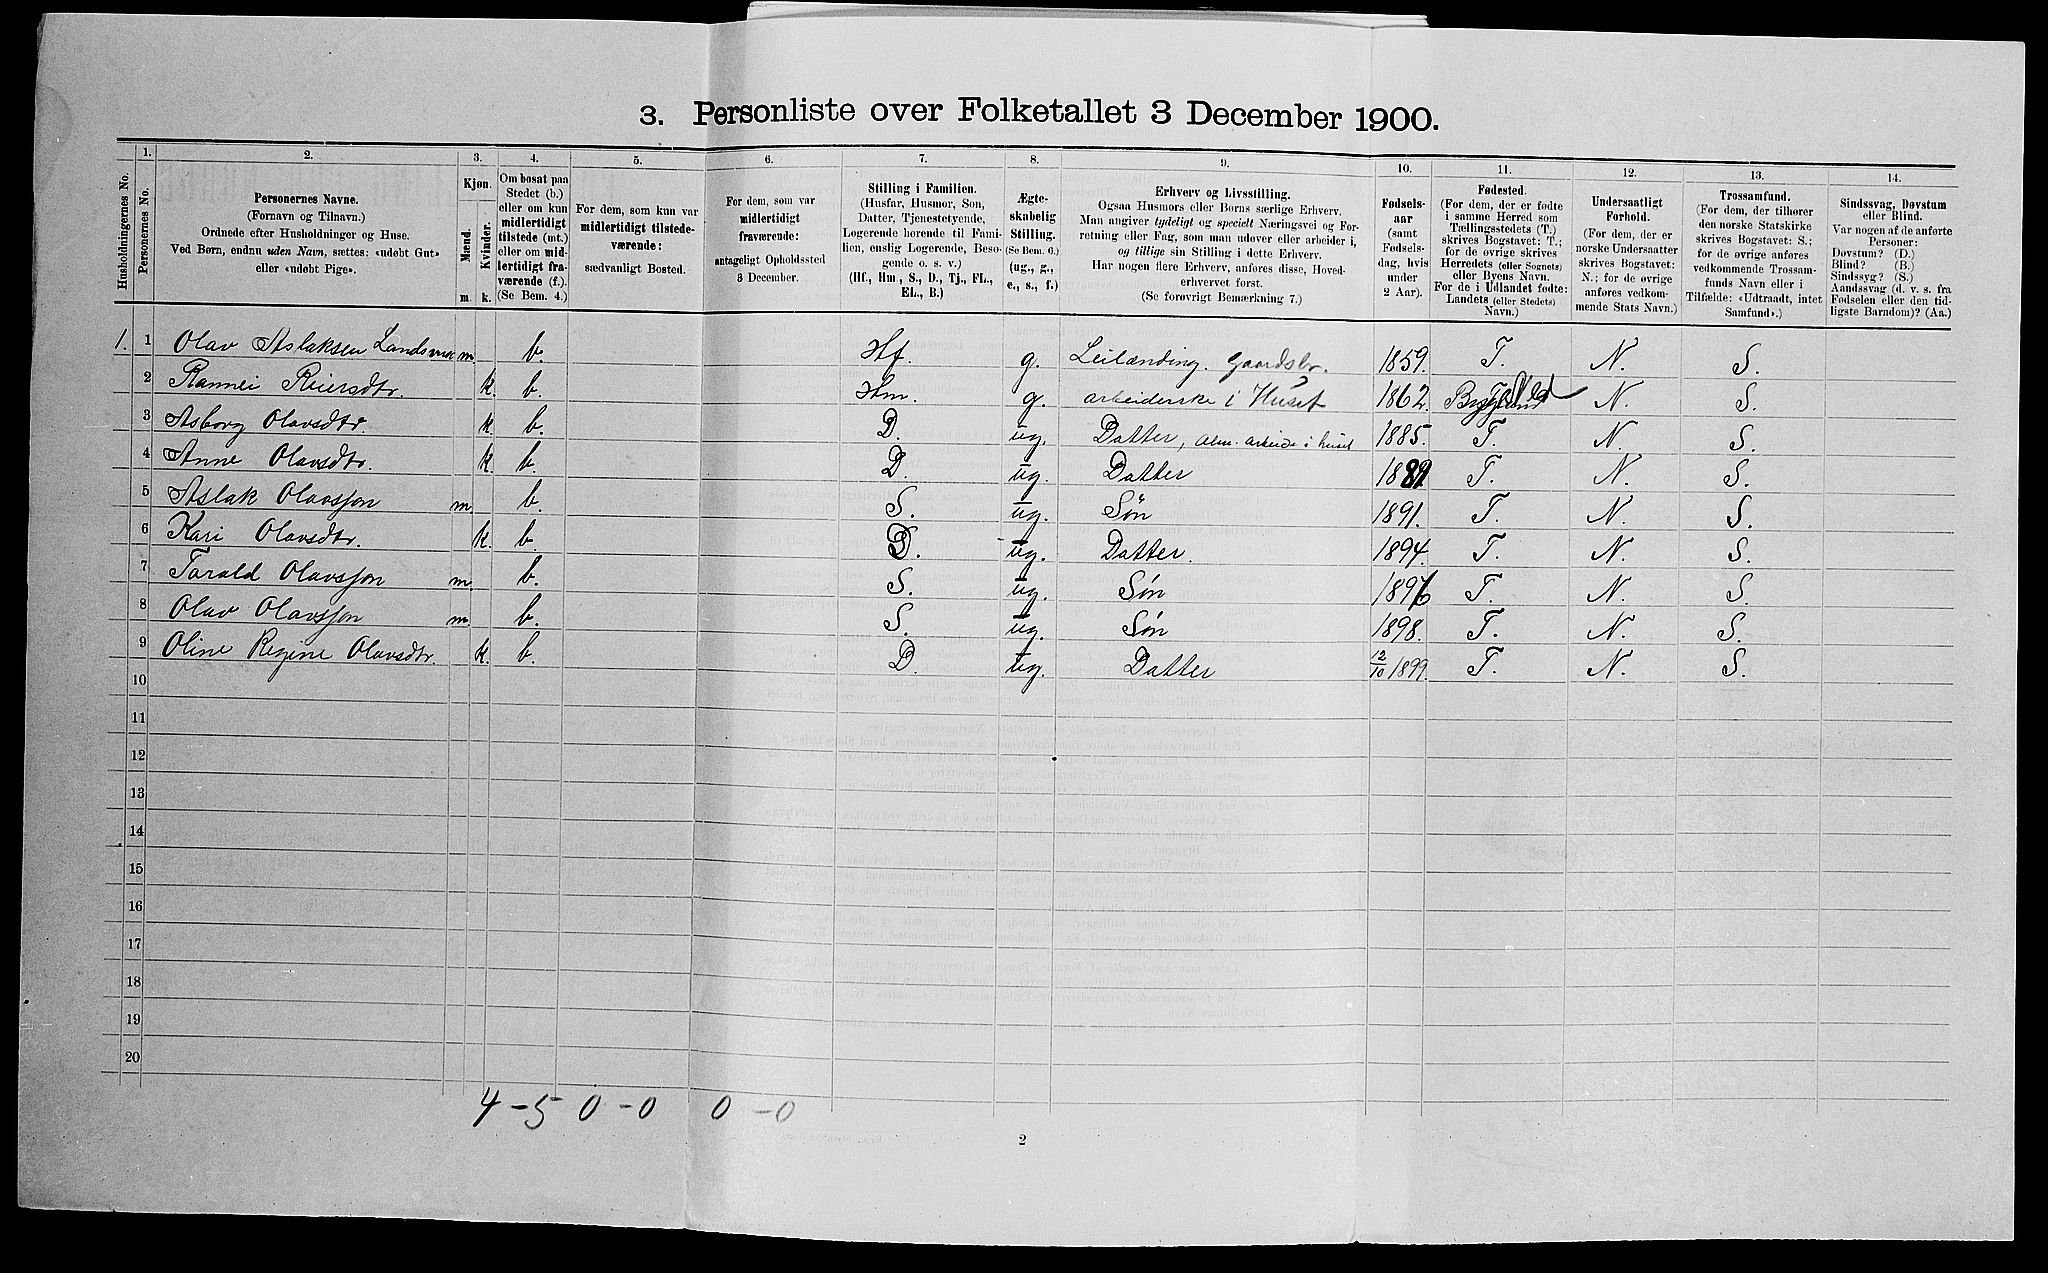 3. Personliste over Folketallet 3 December 1900.
Husholdningernes No.
1.
Personernes No.
2.
Personernes Navne.
(Fornavn og Tilnavn.)
Ordnede efter Husholdninger og Huse.
Ved Børn, endnu uden Navn, sættes: «udøbt Gut»
eller «udøbt Pige».
3.
Kjøn.
Mænd.
Kvinder.
m. k.
4.
Om bosat paa
Stedet (b.)
eller om kun
midlertidigt
tilstede (mt.)
eller om mid-
lertidigt fra-
værende (f.).
(Se Bem. 4.)
5.
For dem, som kun var
midlertidigt tilstede-
værende:
sædvanligt Bosted.
6.
For dem, som var
midlertidigt
fraværende:
antageligt Opholdssted
3 December.
7.
Stilling i Familien.
(Husfar, Husmor, Søn,
Datter, Tjenestetyende,
Logerende hørende til Fami-
lien, enslig Logerende, Beso-
gende o. s. v.)
(Hf., Hm., S., D., Tj., FL.,
EL., B.)
8.
Ægte-
skabelig
Stilling.
(Se Bem. 6.)
(ug., g.,
e., s., f.)
9.
Erhverv og Livsstilling.
Ogsaa Husmors eller Børns særlige Erhverv.
Man angiver tydeligt og specielt Næringsvei og For-
retning eller Fag, som man udøver eller arbeider i,
og tillige sin Stilling i dette Erhverv.
Har nogen flere Erhverv, anføres disse, Hoved-
erhvervet først.
(Se forøvrigt Bemærkning 7.)
10.
Fødsels-
aar
(samt
Fødsels-
dag, hvis
under
2 Aar).
11.
Fødested.
(For dem, der er fødte
i samme Herred som
Tællingsstedets (T.)
skrives Bogstavet: T.;
for de øvrige skrives
Herredets (eller Sognets)
eller Byens Navn.
For de i Udlandet fødte:
Landets (eller Stedets)
Navn.)
12.
Undersaatligt
Forhold.
(For dem, der er
norske Undersaatter
skrives Bogstavet:
N.; for de øvrige
anføres vedkom-
mende Stats Navn.)
13.
Trossamfund.
(For dem, der tilhører
den norske Statskirke
skrives Bogstavet: S.;
for de øvrige anføres
vedkommende Trossam-
funds Navn eller i
Tilfælde: «Udtraadt, intet
Samfund».)
14.
Sindssvag, Døvstum
eller Blind.
Var nogen af de anførte
Personer:
Døvstum? (D.)
Blind? (B.)
Sindssyg? (S.)
Aandssvag (d. v. s. fra
Fødselen eller den tid-
ligste Barndom)? (Aa.)
1. 1 Olav Aslaksen m. b. Hf. g. Leilænding. Gaardsbr. 1859. T. N. S.
2 Rannei Reiersdtr. k. b. Hm. g. arbeiderske i Huset 1862. Bygland N. S.
3 Asborg Olavsdtr. k. b. D. ug. Datter, alm. arbeide i huset 1885. T. N. S.
4 Anne Olavsdtr. k. b. D. ug. Datter T. N. S.
5 Aslak Olavsson m. b. S. ug. Søn 1891. T. N. S.
6 Kari Olavsdtr. k. b. D. ug. Datter. 1894. T. N. S.
7 Tarald Olavsson m. b. S. ug. Søn 1896 T. N. S.
8 Olav Olavsson m. b. S. ug. Søn 1898. T. N. S.
9 Oline Regine Olavsdtr. k. b. D. ug. Datter 12/10 1899. T. N. S.
10
11
12
13
14
15
16
17
18
19
20
4 - 5 0 - 0 0 - 0
2